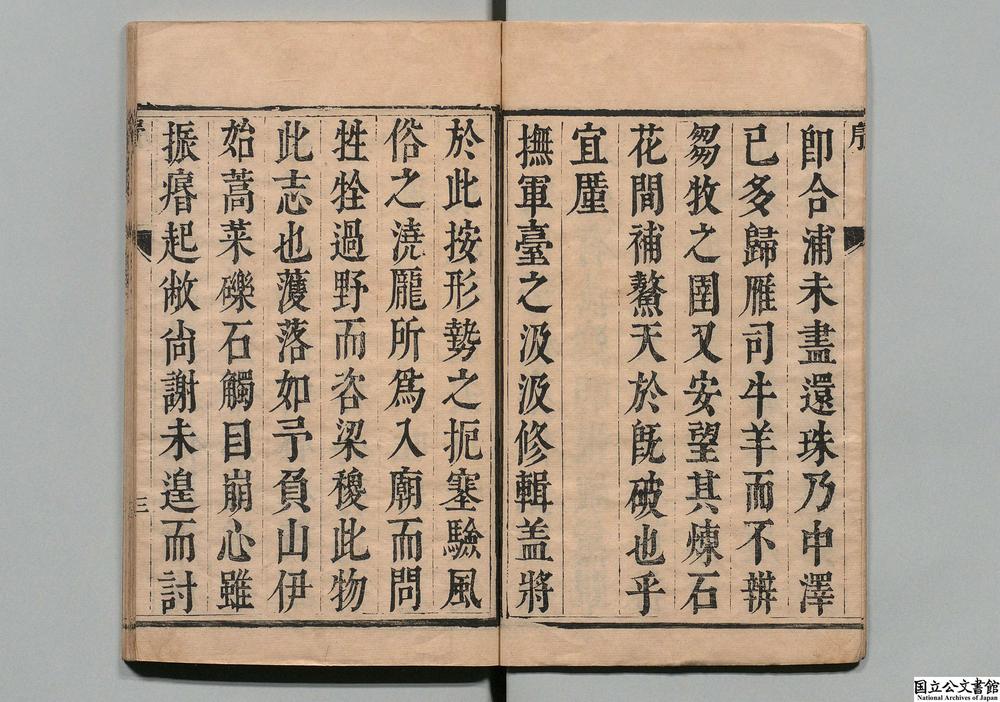 序
卽合浦未盡還珠乃中澤
已多歸雁司牛羊而不辨
芻牧之圉又安望其煉石
花間補鰲天於旣破也乎
宜廑
撫軍臺之汲汲修輯盖將
於此按形勢之扼塞驗風
俗之澆龎所爲入廟而問
牲牷過野而咨梁稷此物
此志也蒦落如予負山伊
始蒿萊礫石觸目崩心雖
振瘠起敝尙謝未遑而討
三
国立公文書館
National Archives of Japan